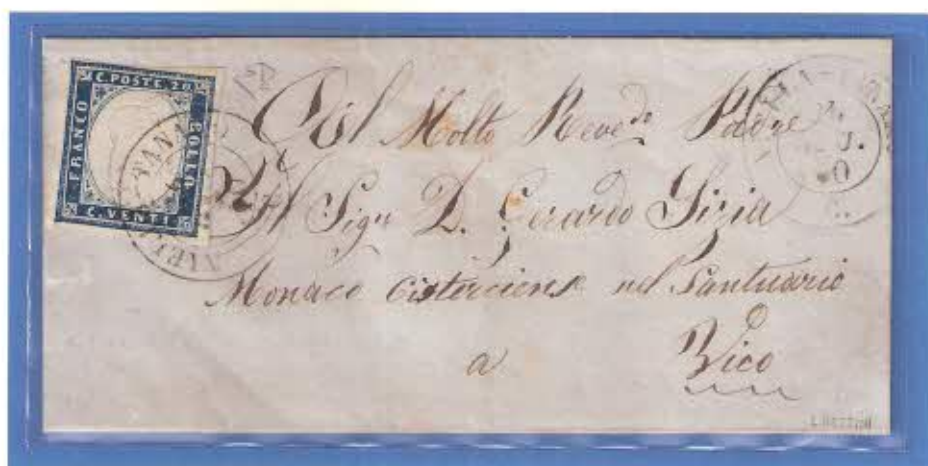 C. POSTE 20
FRANCO
BOLLO
C. VENTI
Al Molto Revedo Padre
Il Sigr D. Gerardo
Monaco cisterciense nel Santuario
a Vico